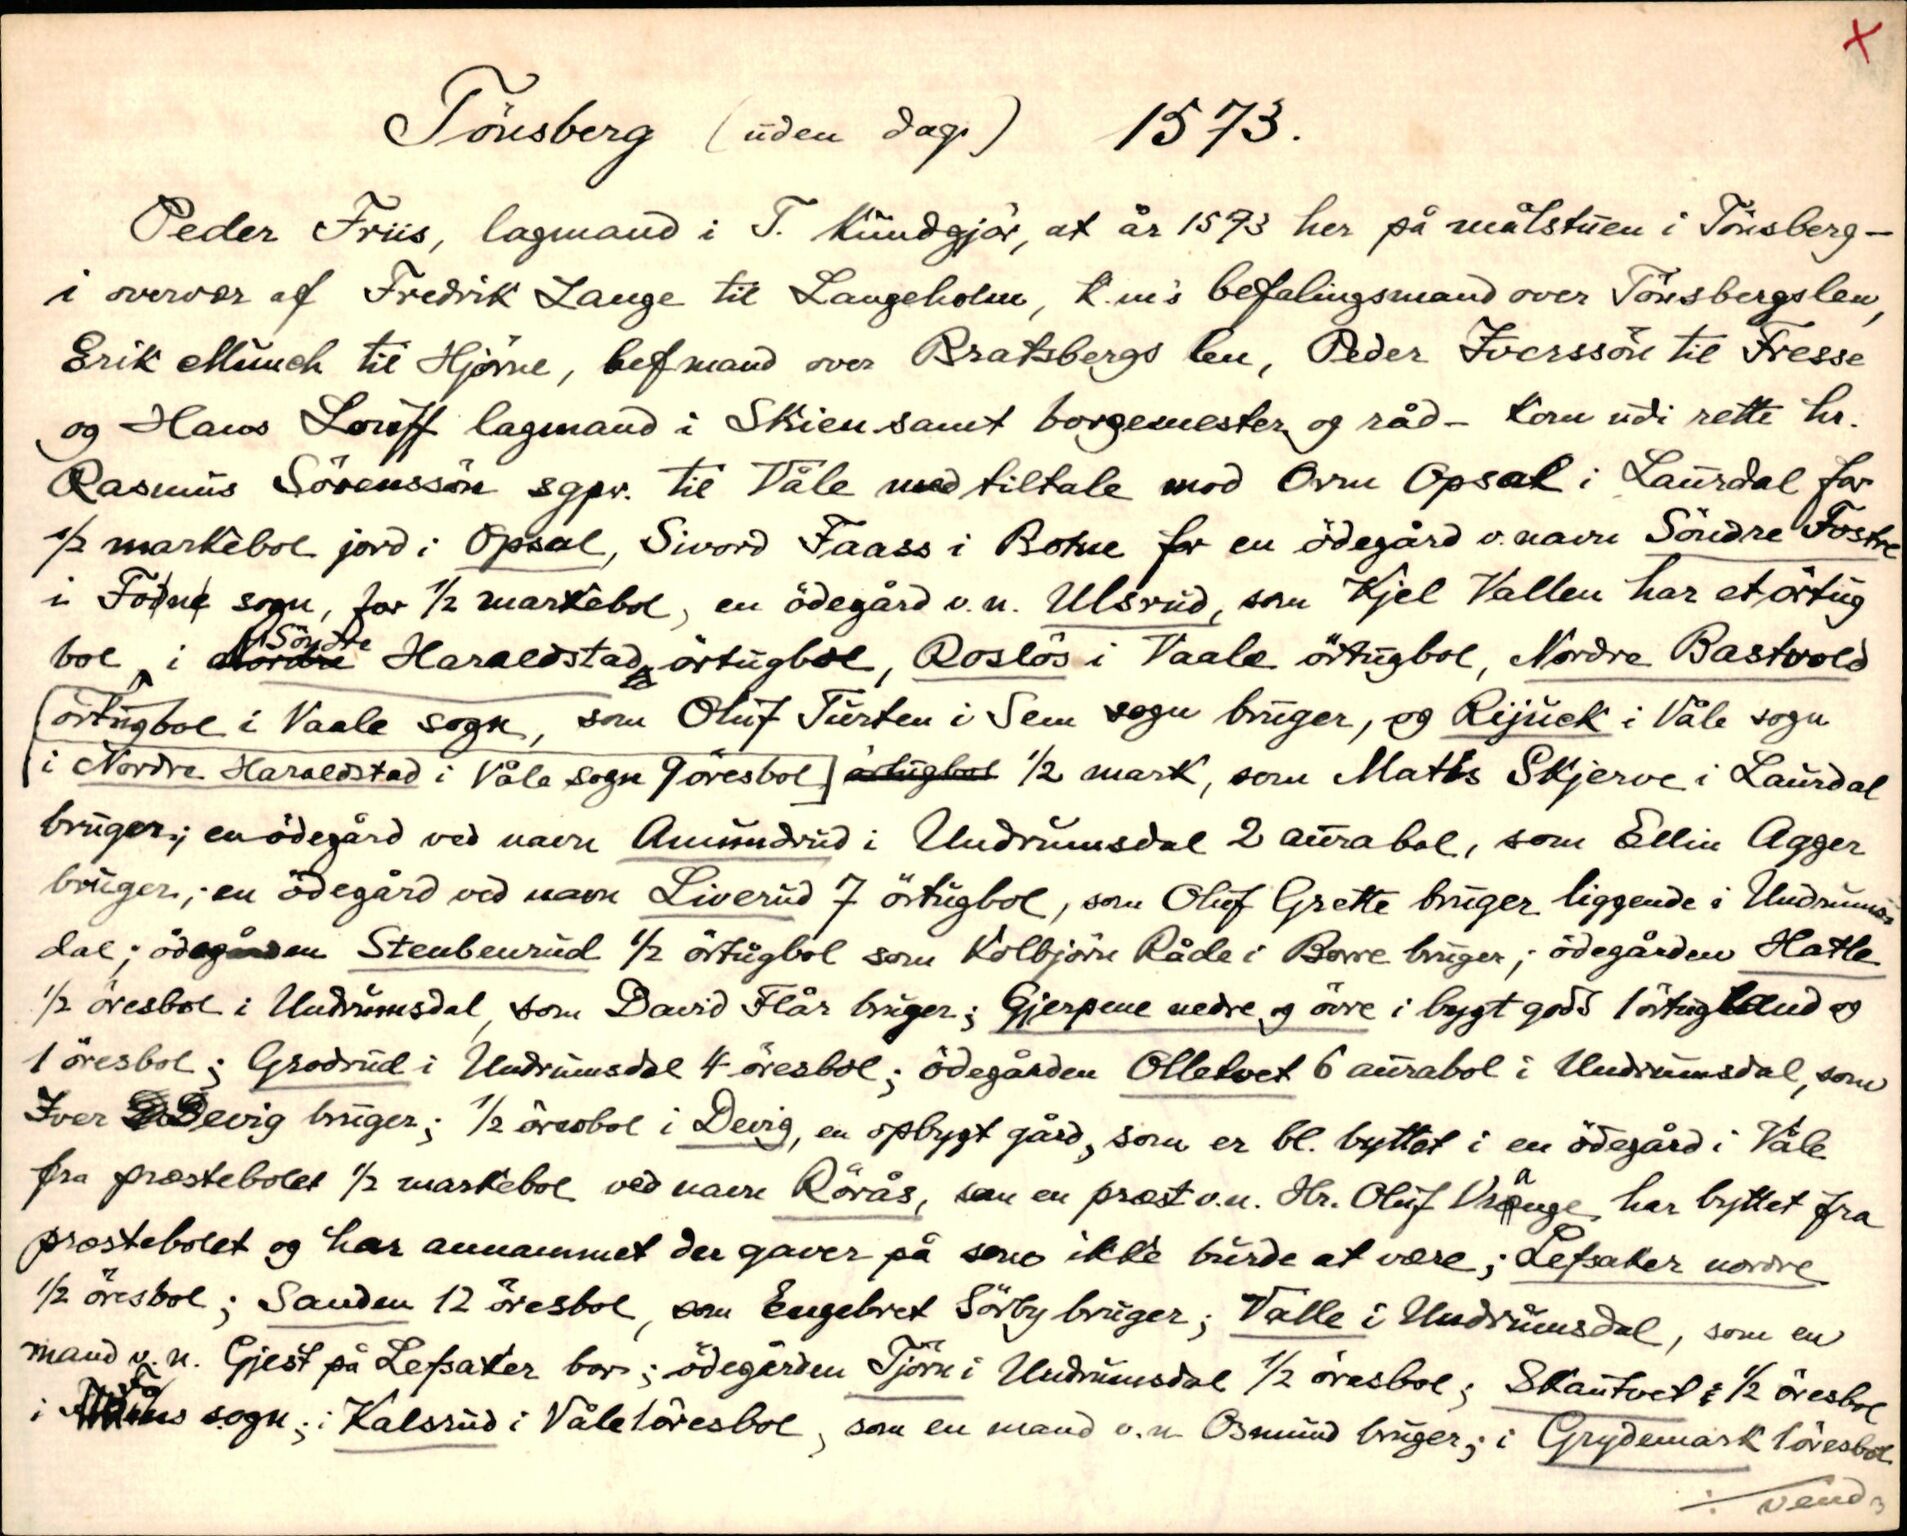 x
Tönsberg (uden dag.) 1573.
Peder Friis, lagmand i T. kundgjör, at år 1573 her på målstuen i Tönsberg –
i overvær af Fredrik Lange til Langeholm, k.m's befalingsmand over Tönsbergslen,
Erik Munch til Hjörne, befmand over Bratsbergs len, Peder Iverssön til Fresse
og Hans Loüff lagmand i Skien samt borgemester og råd – kom udi rette hr.
Rasmus Sörenssön sgpr. til Våle med tiltale mod Orm Opsal i Laurdal for
1/2 markebol jord i Opsal, Sivord Faass i Botne for en ödegård v. navn Söndre Fostre
i Fotne sogn, for 1/2 markebol, en ödegård v.n. Ulsrud, som Kjel Vallen har et örtug
bol, i Söndre Haraldstad örtugbol, Roslös i Vaale örtugbol, Nordre Bastvold
örtugbol i Vaale sogn, som Oluf Turten i Sem sogn bruger, og Rijuck i Våle sogn
[i Nordre Haraldstad i Våle sogn 9 öresbol] örtugbol 1/2 mark, som Mattis Skjerve i Laurdal
bruger; en ödegård ved navn Amundrud i Undrumsdal 2 aurabol, som Ellin Agger
bruger; en ödegård ved navn Liverud 7 örtugbol, som Oluf Grette bruger liggende i Undrums
dal; ödegården Stenbenrud 1/2 örtugbol som Kolbjörn Råde i Borre bruger; ödegården Hatle
1/2 öresbol i Undrumsdal, som David Flår bruger; Gjerpene nedre og övre i bygt gods 1 örtugland og
1 öresbol; Grodrud i Undrumsdal 4 öresbol; ödegården Olletvet 6 aurabol i Undrumsdal, som
Iver Devig bruger; 1/2 öresbol i Devig, en opbygt gård, som er bl. byttet i en ödegård i Våle
fra præstebolet 1/2 markebol ved navn Rörås, som en præst v.n. Hr. Oluf Vrånge har byttet fra
præstebolet og har annammet der gaver på som ikke burde at være; Lefsaker nordre
1/2 öresbol; Sanden 12 öresbol, som Engebret Sörby bruger; Valle i Undrumsdal, som en
mand v.n. Gjest på Lefsaker bor; ödegården Tjörn i Undrumsdal 1/2 öresbol; Skautvet i 1/2 öresbol
i sogn; i Kalsrud i Våle 1 öresbol, som en mand v.n. Osmund bruger; i Grydemark 1 öresbol
÷ vend